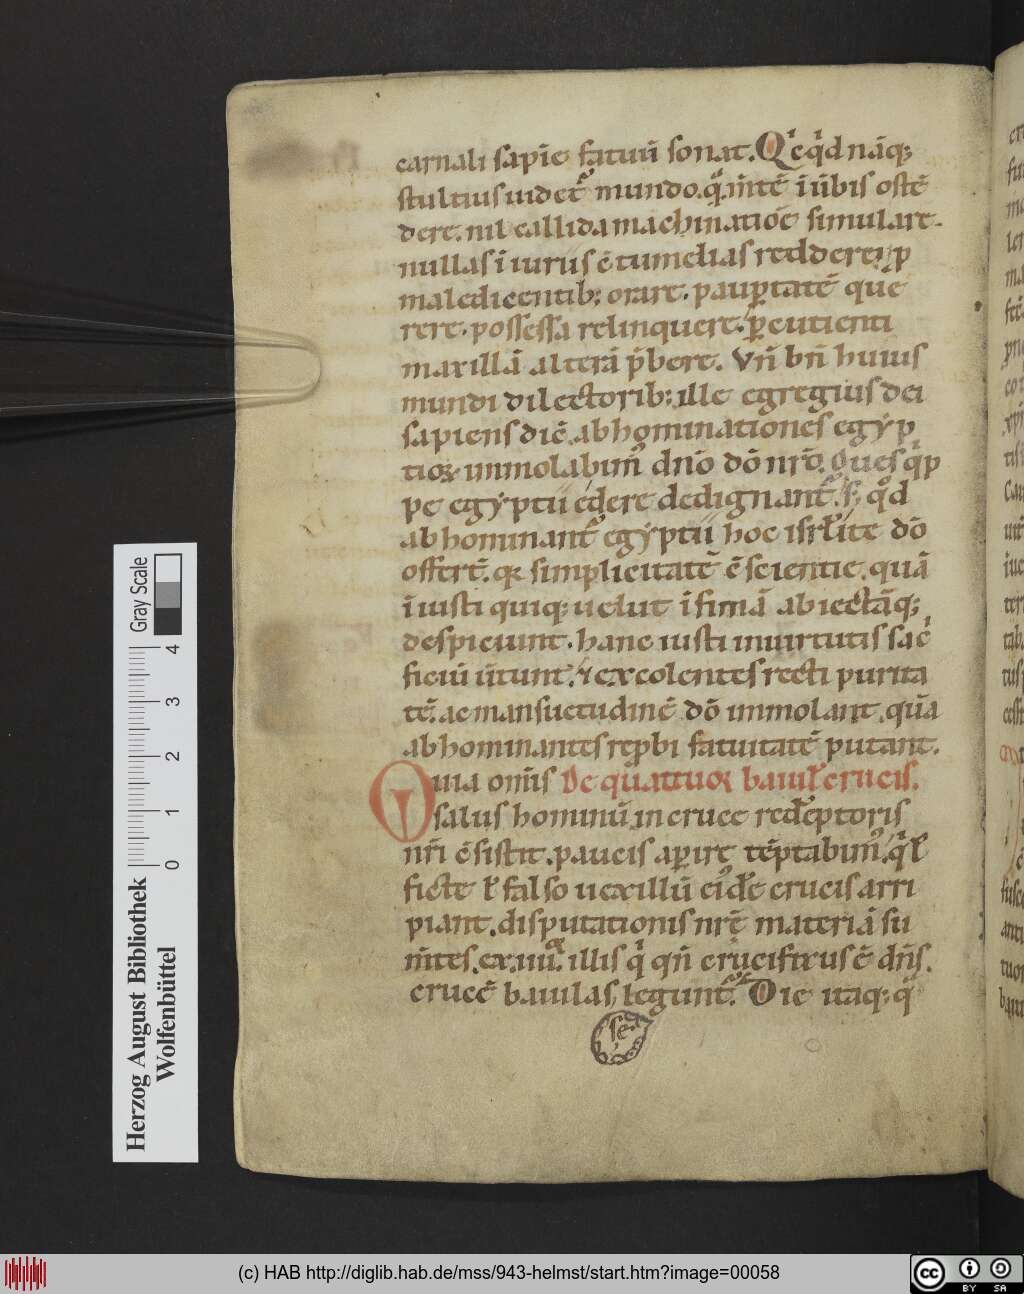 carnali sapiẽ fatuũ sonat. Qͥcqͥd nãq;
stultius uidet᷑ mundo. qͣ. m̃tẽ ĩ ũbis ostẽ
dere. nil callida machinatiõe simulare.
nullas ĩiuriis cõtumelias reddere. ꝓ
maledicentib; orare. pauꝑtatẽ que
rere. possessa relinquere. ꝑcutienti
maxillã alterã p̃bere. Vñ bñ huius
mundi dilectorib; ille egregius dei
sapiens dic̃. abhominationes egyp
tioꝝ immolabim᷒ dnõ dõ nrõ. Oues qͥp
pe egyptii edere dedignant᷑. sꝫ qͦd
abhominant᷑ egyptii hoc isrl̃ite dõ
offerẽ. qꝛ simplicitatẽ cõscientie. quã
ĩiusti quiq; uelut ĩfimã abiectãq;
despiciunt. hanc iusti in uirtutis sac̃
ficiũ ũtunt. ⁊ excolentes recti purita
tẽ. ac mansuetudinẽ dõ immolant. quã
abhominantes rep̃bi fatuitatẽ putant.
Quia om̃is De quattuor baiul̃ crucis.
salus hominũ in cruce redẽptoris
nr̃i cõsistit. paucis aꝑire tẽptabim᷒. qͥ l̃
ficte l̃ falso uexillũ eiᷤdẽ crucis arri
piant. disputationis nrẽ materiã su
m̃tes. ex. iiii. illis qͥ qñ crucifixus ẽ dñs.
crucẽ baiulasse legunt᷑. Dic itaq; qͥ
se
Herzog August Bibliothek
Wolfenbüttel
0 1 2 3 4
Gray Scale
(c) HAB http://diglib.hab.de/mss/943-helmst/start.htm?image=00058
cc BY SA